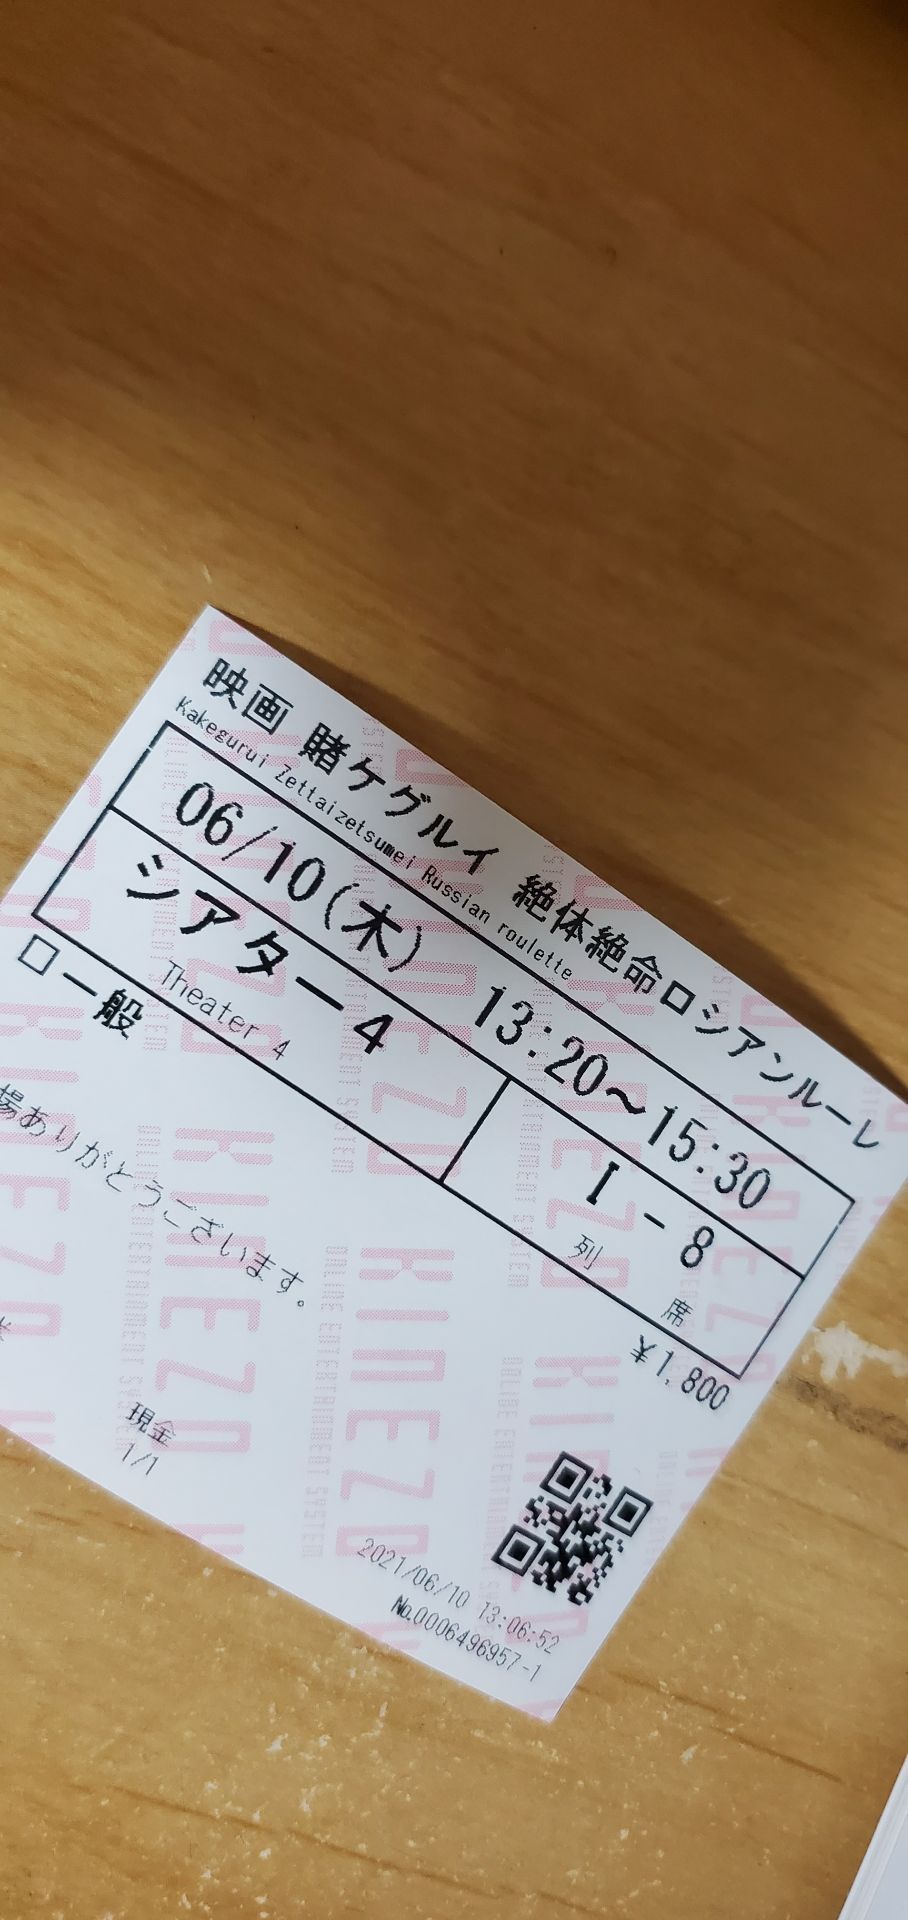 映画 賭ケグルイ 絶体絶命ロシアンルーレ
Kakegurui Zettaizetsumei Russian roulette
06/10(木) 13:20~15:30
シアター4
Theater 4
I - 8
列 席
ロ一般
¥1,800
場ありがとうございます。
現金
1/1
2021/06/10 13:06:52
No.0006496957-1
KINEZO
ONLINE ENTERTAINMENT SYSTEM